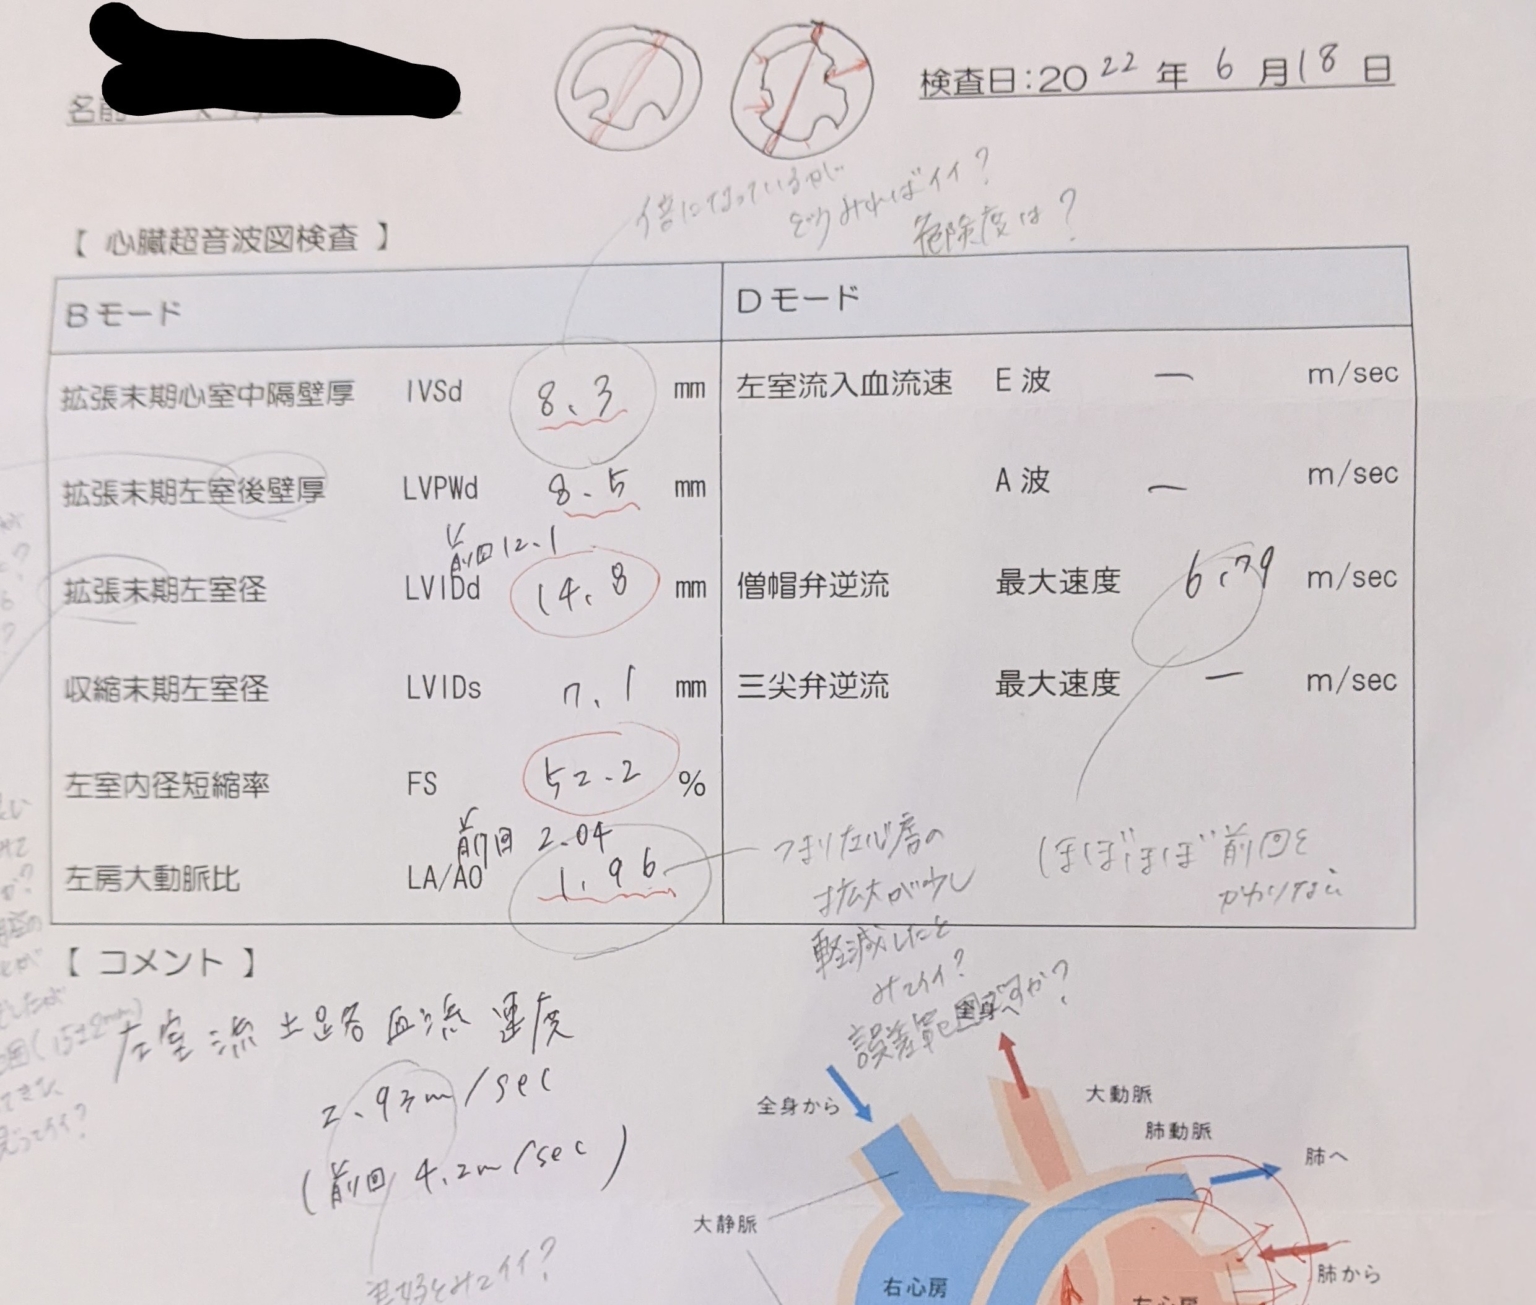 名前
検査日:2022年6月18日
倍になっているが
どうみればイイ?
危険度は?
【 心臓超音波図検査 】
Bモード
Dモード
拡張末期心室中隔壁厚 IVSd 8.3 mm
左室流入血流速 E波 — m/sec
拡張末期左室後壁厚 LVPWd 8.5 mm
A波 — m/sec
前回12.1
拡張末期左室径 LVIDd 14.8 mm
僧帽弁逆流 最大速度 6.79 m/sec
収縮末期左室径 LVIDs 7.1 mm
三尖弁逆流 最大速度 — m/sec
左室内径短縮率 FS 52.2 %
前回 2.04
左房大動脈比 LA/AO 1.96
つまり左心房の
拡大が少し
軽減したと
みてイイ?
誤差範囲ですか?
ほぼほぼ前回と
かわりない
【 コメント 】
左室流出路血流速度
2.93m/sec
(前回 4.2m/sec)
(15±2mm)
全身へ
全身から
大動脈
肺動脈
肺へ
大静脈
肺から
右心房
左心房
良好とみてイイ?